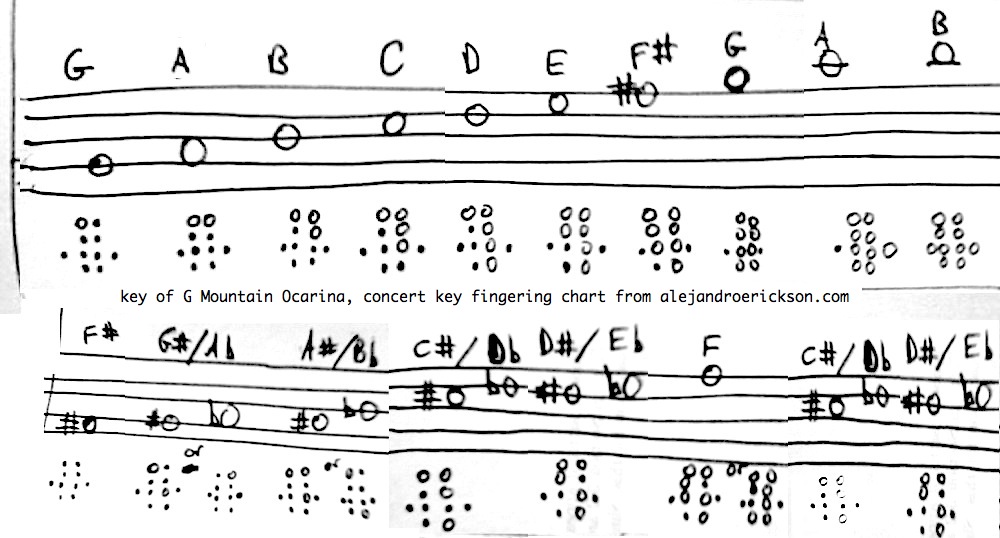 G A B C D E F# G A B
key of G Mountain Ocarina, concert key fingering chart from alejandroerickson.com
F# G#/Ab A#/Bb C#/Db D#/Eb F C#/Db D#/Eb
or or or